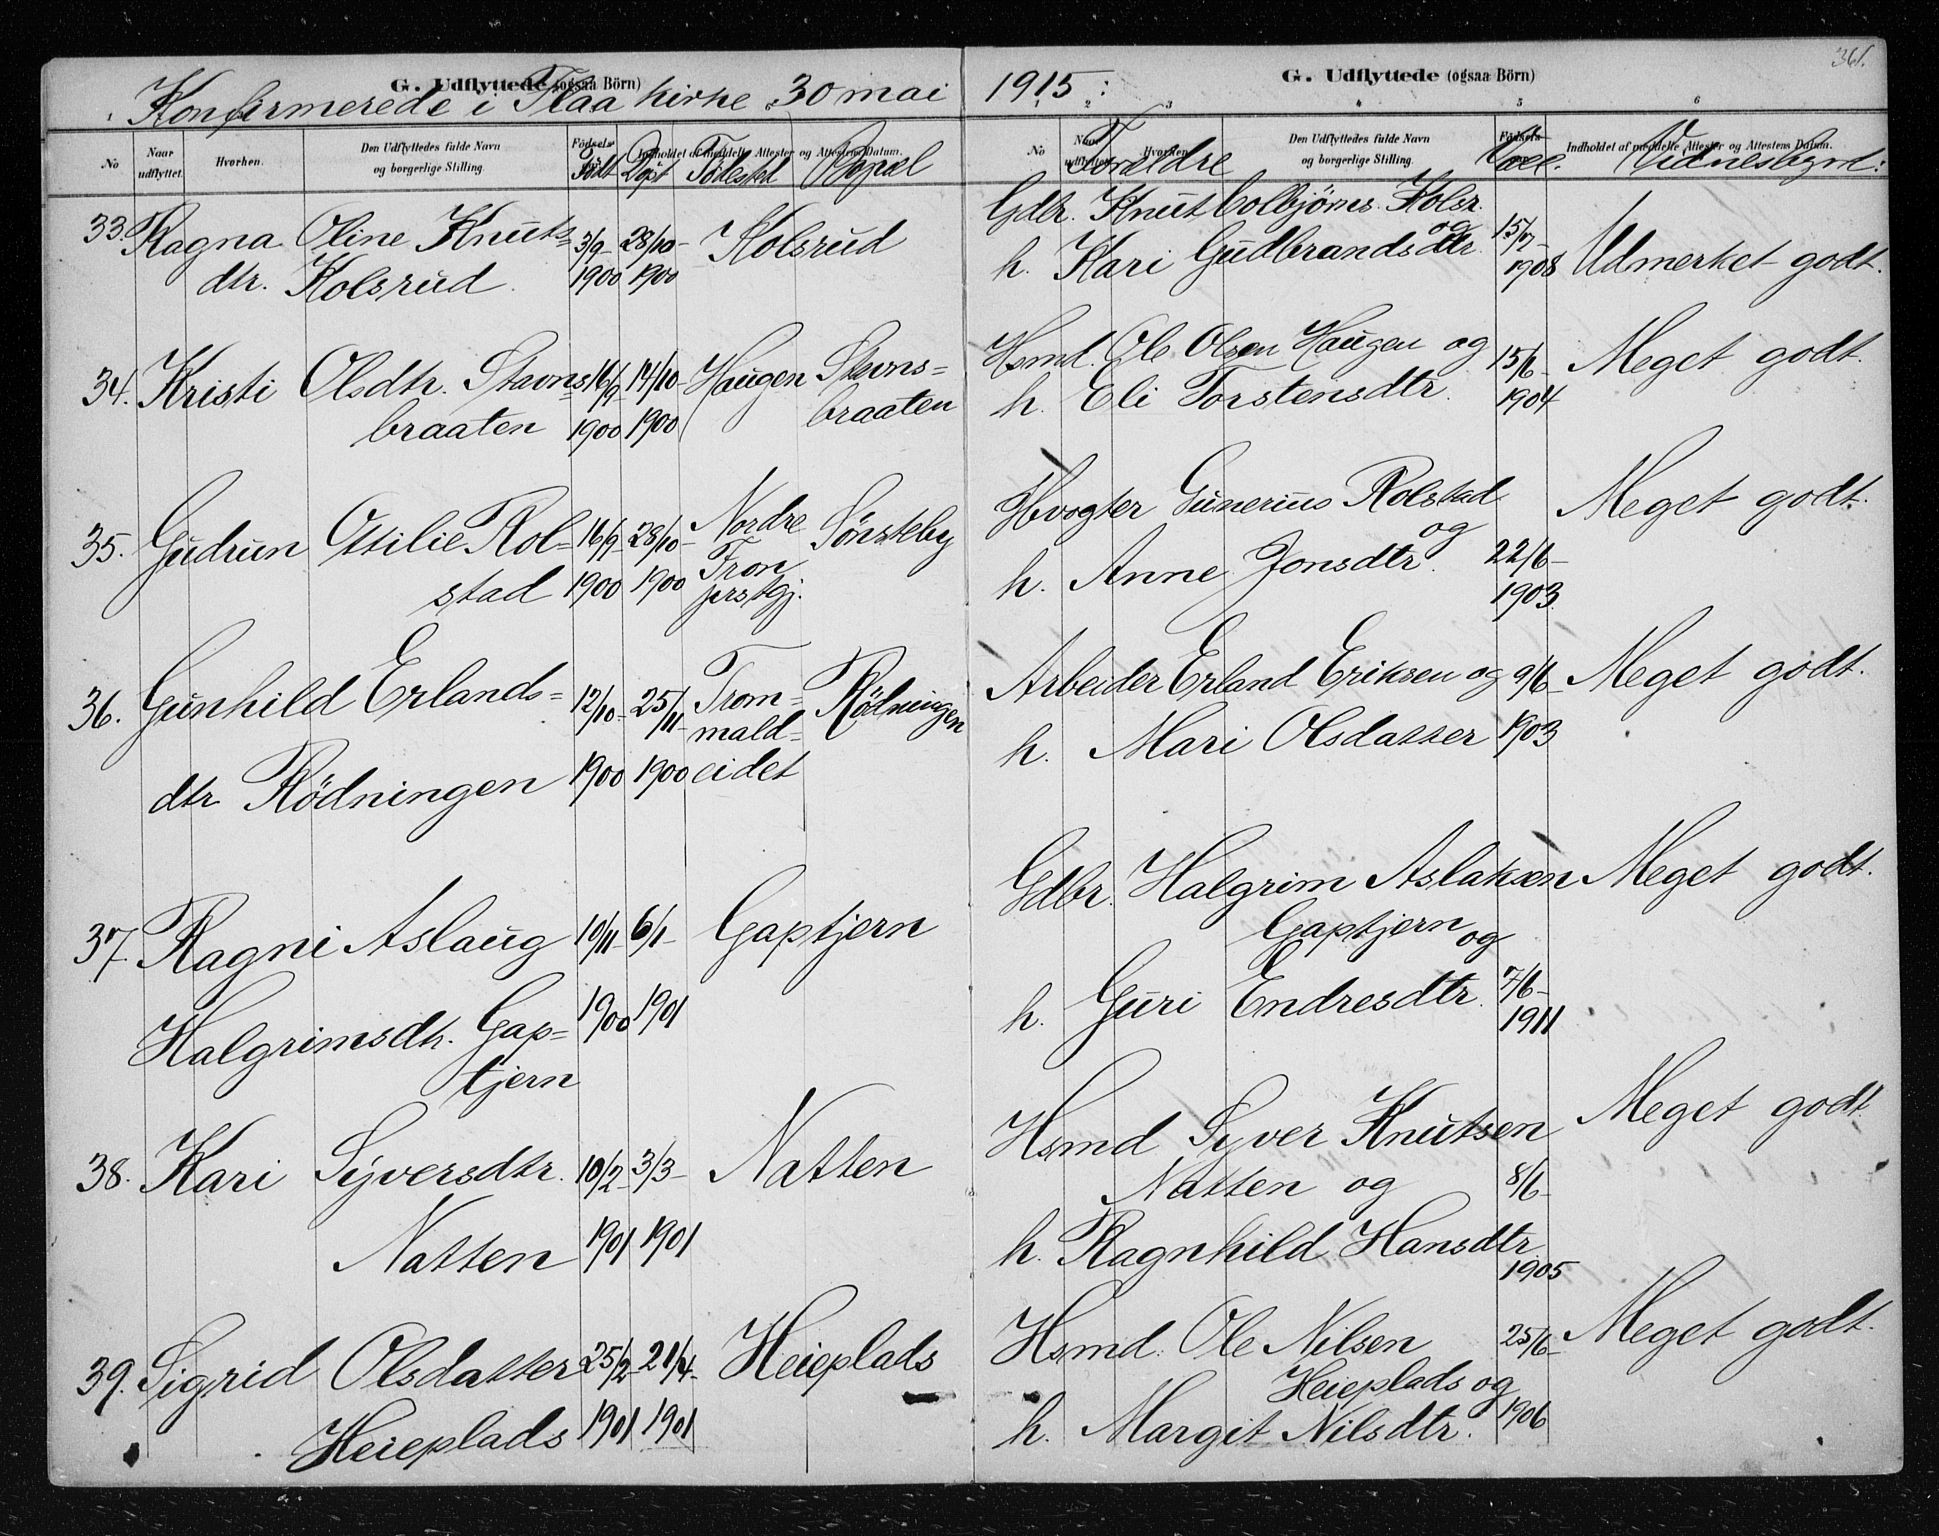 361.
G. Udflyttede (ogsaa Börn) G. Udflyttede (ogsaa Börn)
Konfirmerede i Flaa kirke 30 mai 1915:
1 2 3 4 5 6
No Naar udflyttet. Hvorhen. Den Udflyttedes fulde Navn og borgerlige Stilling. Födsels- Indholdet af meddelte Attester og Attestens Datum.
Födt Döpt Födested Bopæl
No Naar udflyttet. Hvorhen. Den Udflyttedes fulde Navn og borgerlige Stilling. Födsels- Indholdet af meddelte Attester og Attestens Datum.
Forældre Vacc. Vidnesbyrd:
33. Ragna Oline Knuts= 3/9- 28/10- Kolsrud
dtr. Kolsrud. 1900 1900
Gdbr. Knut Colbjörns. Kolsr. og
h. Kari Gudbrandsdtr. 15/7- 1908 Udmerket godt.
34. Kristi Olsdtr. Stavns= 16/9 14/10- Haugen Stavns=
braaten 1900 1900 braaten
Hsmd. Ole Olsen Haugen og 15/6- Meget godt.
h. Eli Torstensdtr. 1904
35. Gudrun Ottilie Rol= 16/9- 28/10- Nordre Sönsteby
stad 1900 1900 Tron
Hvogter Gunerius Rolstad Meget godt.
og
h. Anne Jonsdtr. 22/6-
1903.
36. Gunhild Erlands= 12/10- 25/11- Trom= Rödningen
mald=
dtr Rödningen 1900 1900 eidet
Arbeider Erland Eriksen og 9/6- Meget godt.
h. Mari Olsdatter 1903
37. Ragni Aslaug 10/11- 6/1- Gaptjern
Halgrimsdtr. Gap= 1900 1901
tjern
Gdbr. Halgrim Aslaksen Meget godt.
Gaptjern og
h. Guri Endresdtr. 7/6-
1911
38. Kari Syversdtr. 10/2- 3/3- Natten
Natten 1901 1901
Hsmd Syver Knutsen Meget godt.
Natten og 8/6-
h. Ragnhild Hansdtr.
1905
39. Sigrid Olsdatter 25/2- 21/4- Heieplads
Heieplads 1901 1901
Hsmd. Ole Nilsen 25/6- Meget godt.
Heieplads og
h. Margit Nilsdtr. 1906